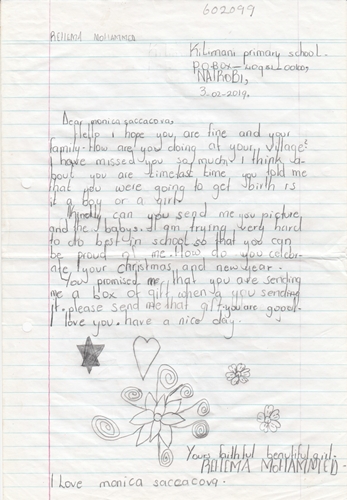 602099
REHEMA MOHAMMED
Kilimani primary school.
P.O BOX - 40981,00100,
NAIROBI,
3-02-2019.
Dear monica saccacova,
Hello i hope you are fine and your
family. How are you doing at your village?
I have missed you so much. I think a-
bout you are time last time you told me
that you were going to get birth is
it a boy or a girl.
Kindly can you send me you picture,
and the babys. I am trying very hard
to do best in school so that you can
be proud of me. How do you celebr-
ate your christmas and new year.
You promised me that you are sending
me a box of gift, when a you sending
it. please send me that gift. you are good.
I love you. have a nice day.
Yours faithful beautiful girl.
REHEMA MOHAMMED.
I Love monica saccacova.